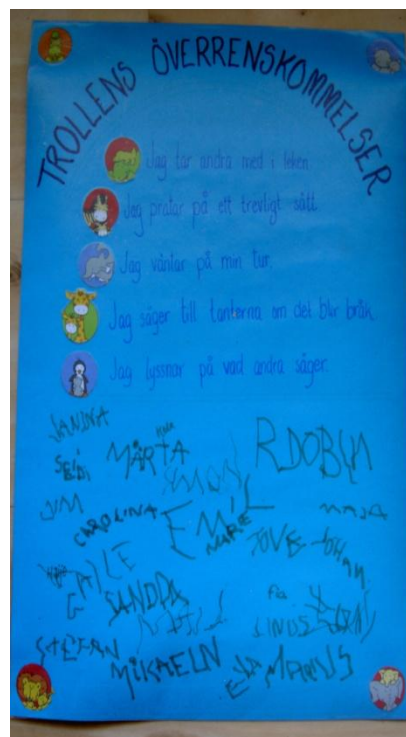 TROLLENS ÖVERRENSKOMMELSER
Jag tar andra med i leken.
Jag pratar på ett trevligt sätt.
Jag väntar på min tur.
Jag säger till tanterna om det blir bråk.
Jag lyssnar på vad andra säger.
SANDRA
MÄRTA
SIMON
JIM
CAROLINA
EMIL
MARIE
MAJA
TOVE
JOHAN
SANDRA
STEFAN
MIKAELN
MAGNUS